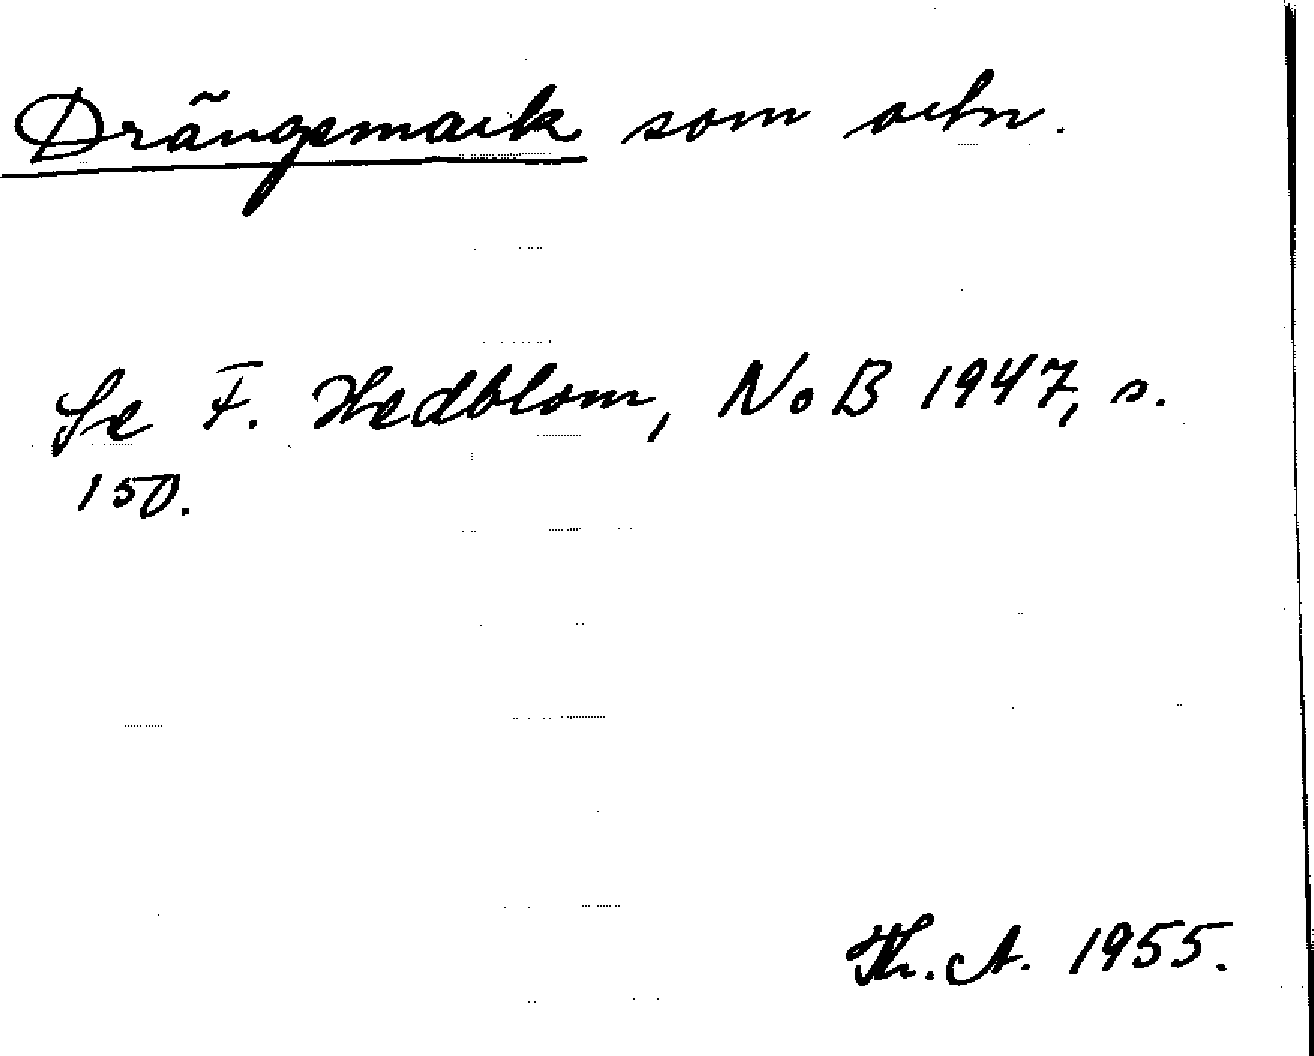 Drängsmark som ortn.
Se F. Hedblom, NoB 1947, s.
150.
Th. A. 1955.